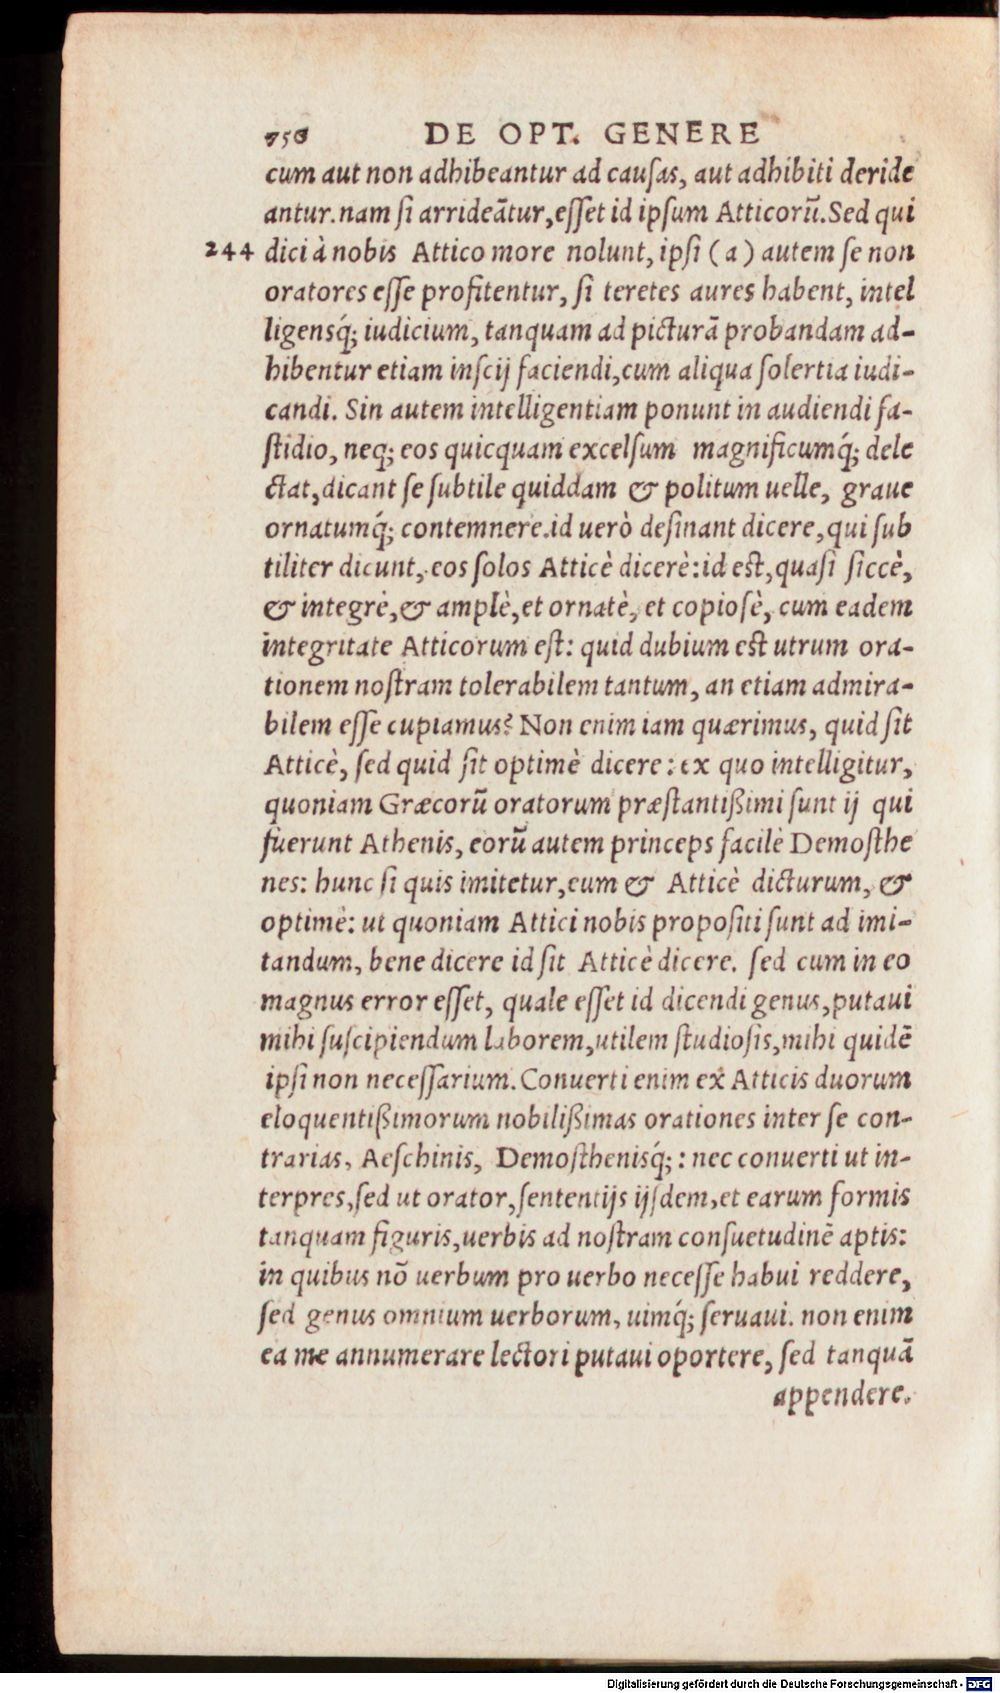 750 DE OPT. GENERE
cum aut non adhibeantur ad cauſas, aut adhibiti deride
antur. nam ſi arrideãtur, eſſet id ipſum Atticorũ. Sed qui
244 dici à nobis Attico more nolunt, ipſi (a) autem ſe non
oratores eſſe profitentur, ſi teretes aures habent, intel
ligensq́; iudicium, tanquam ad picturã probandam ad-
hibentur etiam inſcij faciendi, cum aliqua ſolertia iudi-
candi. Sin autem intelligentiam ponunt in audiendi fa-
ſtidio, neq; eos quicquam excelſum magnificumq́; dele
ctat, dicant ſe ſubtile quiddam & politum uelle, graue
ornatumq́; contemnere. id uerò deſinant dicere, qui ſub
tiliter dicunt, eos ſolos Atticè dicerè: id eſt, quaſi ſiccè,
& integrè, & amplè, et ornatè, et copioſè, cum eadem
integritate Atticorum eſt: quid dubium eſt utrum ora-
tionem noſtram tolerabilem tantum, an etiam admira-
bilem eſſe cupiamus? Non enim iam quærimus, quid ſit
Atticè, ſed quid ſit optimè dicere: ex quo intelligitur,
quoniam Græcorũ oratorum præſtantißimi ſunt ij qui
fuerunt Athenis, eorũ autem princeps facilè Demoſthe
nes: hunc ſi quis imitetur, eum & Atticè dicturum, &
optimè: ut quoniam Attici nobis propoſiti ſunt ad imi-
tandum, bene dicere id ſit Atticè dicere. ſed cum in eo
magnus error eſſet, quale eſſet id dicendi genus, putaui
mihi ſuſcipiendum laborem, utilem ſtudioſis, mihi quidẽ
ipſi non neceſſarium. Conuerti enim ex Atticis duorum
eloquentißimorum nobilißimas orationes inter ſe con-
trarias, Aeſchinis, Demoſthenisq́;: nec conuerti ut in-
terpres, ſed ut orator, ſententijs ijſdem, et earum formis
tanquam figuris, uerbis ad noſtram conſuetudinẽ aptis:
in quibus nõ uerbum pro uerbo neceſſe habui reddere,
ſed genus omnium uerborum, uimq́; ſeruaui. non enim
ea me annumerare lectori putaui oportere, ſed tanquã
appendere.
Digitalisierung gefördert durch die Deutsche Forschungsgemeinschaft - DFG